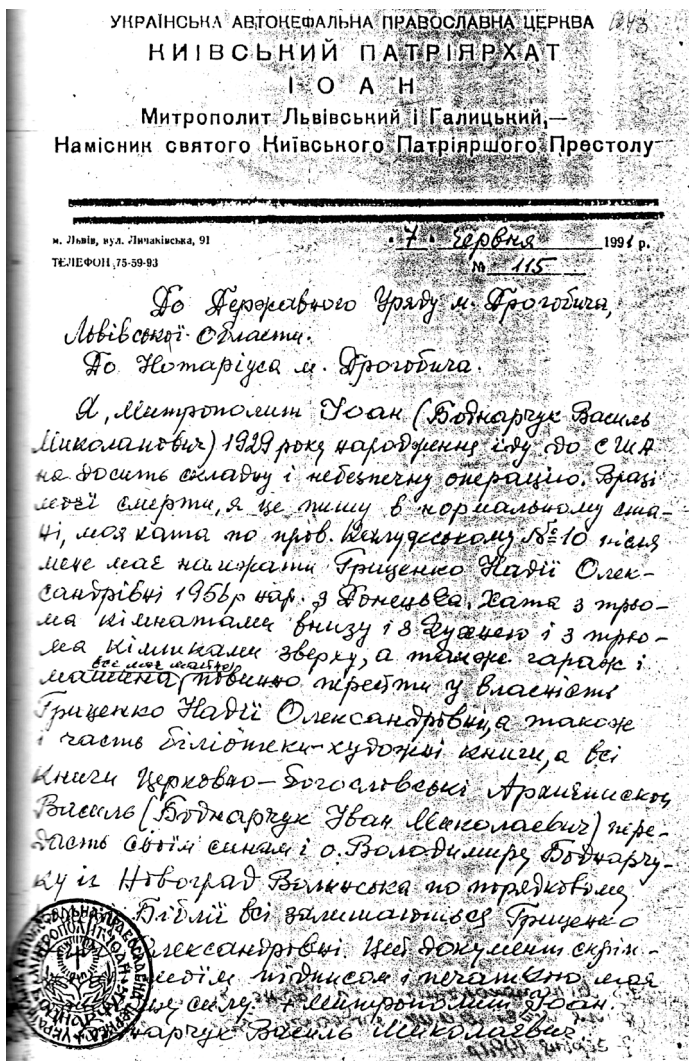 УКРАЇНСЬКА АВТОКЕФАЛЬНА ПРАВОСЛАВНА ЦЕРКВА
КИЇВСЬКИЙ ПАТРІЯРХАТ
ІОАН
Митрополит Львівський і Галицький,—
Намісник святого Київського Патріяршого Престолу
м. Львів, вул. Личаківська, 91
ТЕЛЕФОН 75-59-93
7 червня 1991 р.
№ 115
До Державного Уряду м. Дрогобича,
Львівської Области.
До Нотаріуса м. Дрогобича.
Я, Митрополит Іоан (Боднарчук Василь
Миколаневич) 1929 року народження їду до США
на досить складну і небезпечну операцію. Вразі
моєї смерти, я це пишу в нормальному ста-
ні, моя хата по пров. Калужському № 10 після
мене має належати Гриценко Надії Олек-
сандрівні 1956 р нар. з Донецька. Хата з трьо-
ма кімнатами внизу і з кухнею і з трьо-
ма кімнатами зверху, а також гараж і
всі моє майно
машина, повинно перейти у власність
Гриценко Надії Олександрівні, а також
і часть бібліотеки-художні книги, а всі
Книги Церковно-Богословські Архиєпископ
Василь (Боднарчук Іван Миколаевич) пере-
дасть своїм синам і о. Володимиру Боднарчу-
ку із Новоград Волинська по порядковому
Біблії всі залишаються Гриценко
Олександрівні. Цей документ скріп-
моїм підписом і печаткою моя
силу + Митрополит Іоан
Боднарчук Василь Миколаевич